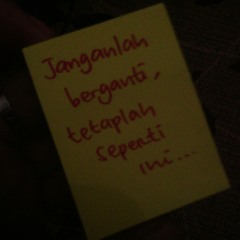 Janganlah
berganti,
tetaplah
seperti
ini...